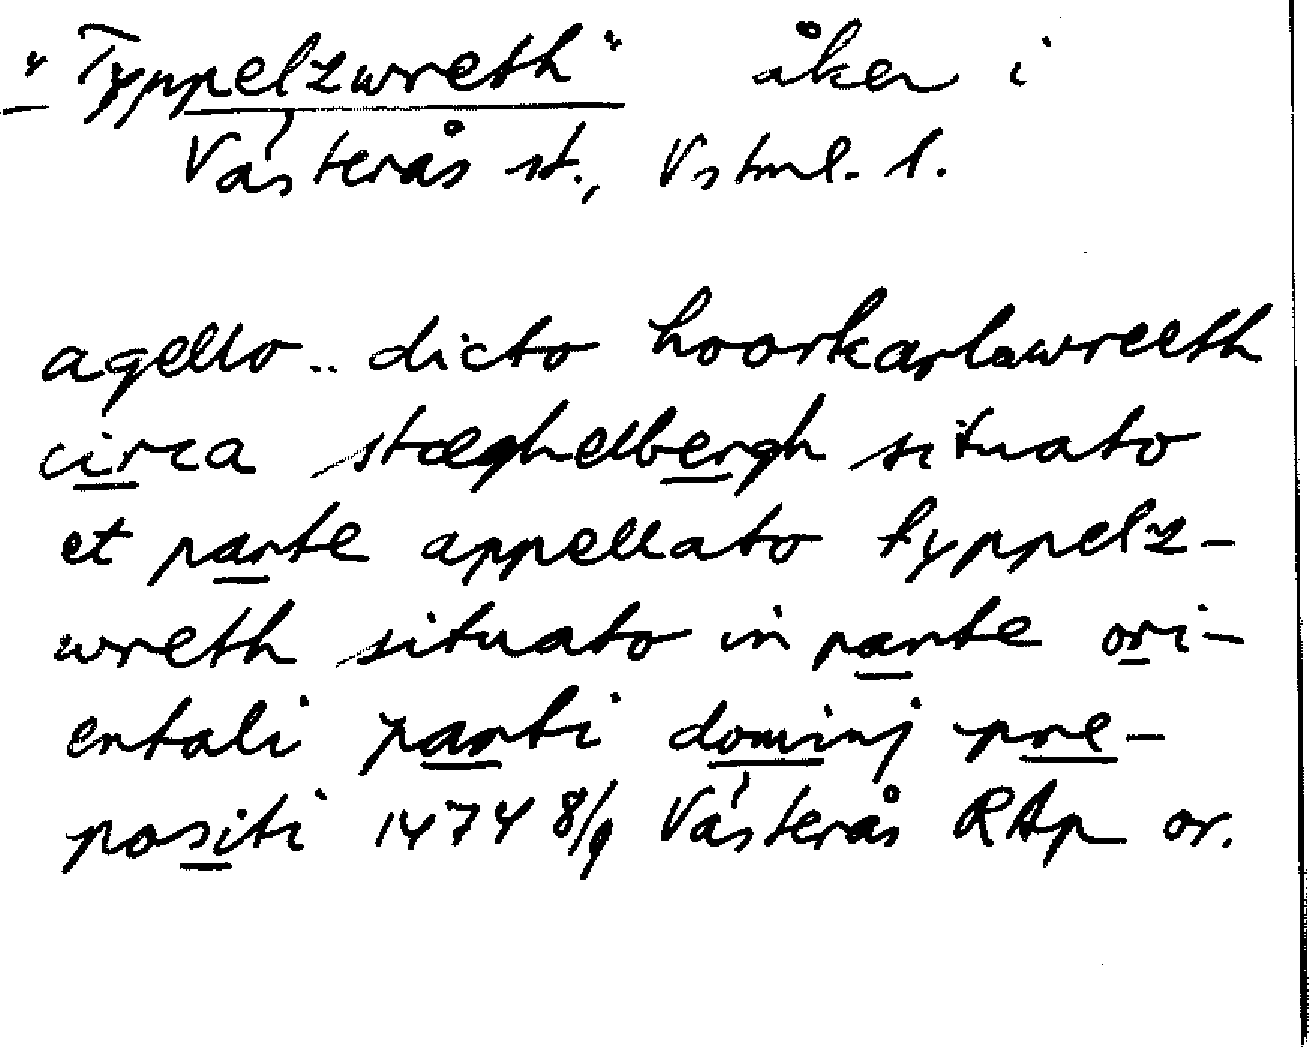 "Typpelzwreth" åker i
Västerås st., Vstml. l.
agello .. dicto hoorkarlawreeth
circa stæghelbergh situato
et parte appellato typpelz-
wreth situato in parte ori-
entali parti dominj pre-
positi 1474 8/9 Västerås RAp or.